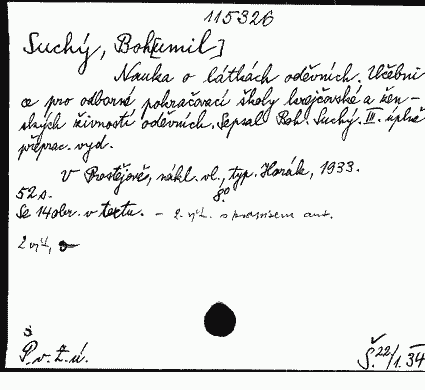 115326
Suchý, Boh[umil]
Nauka o látkách oděvních. Učebni
ce pro odborné pokračovací školy krejčovské a žen-
ských živností oděvních. Sepsal Boh. Suchý. III. úplně
přeprac. vyd.
V Prostějově, nákl. vl., typ. Horák, 1933.
52 s. 8°
Se 14 obr. v textu. – 2. výt. s podpisem aut.
2 výt.
Š
P. v. Z. ú. Š. 22/1. 34